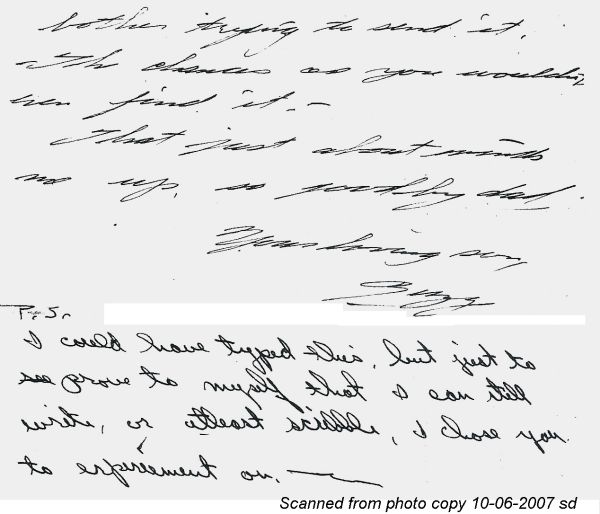 bother trying to send it.
The chances are you wouldn't
even find it. –
That just about winds
me up, so goodby dad.
Your loving son,
Buzz
P.S.
I could have typed this, but just to
prove to myself that I can still
write, or atleast scribble, I chose you
to experiement on. —
Scanned from photo copy 10-06-2007 sd